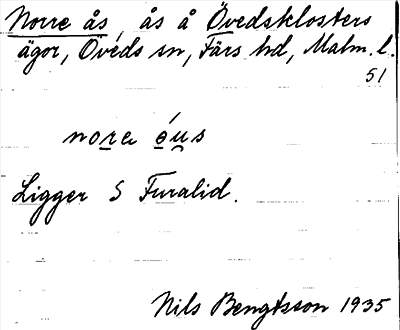 Norre ås, ås å Övedsklosters
ägor, Öveds sn, Färs hd, Malm. l.
51
nore éus
Ligger S Furalid.
Nils Bengtsson 1935